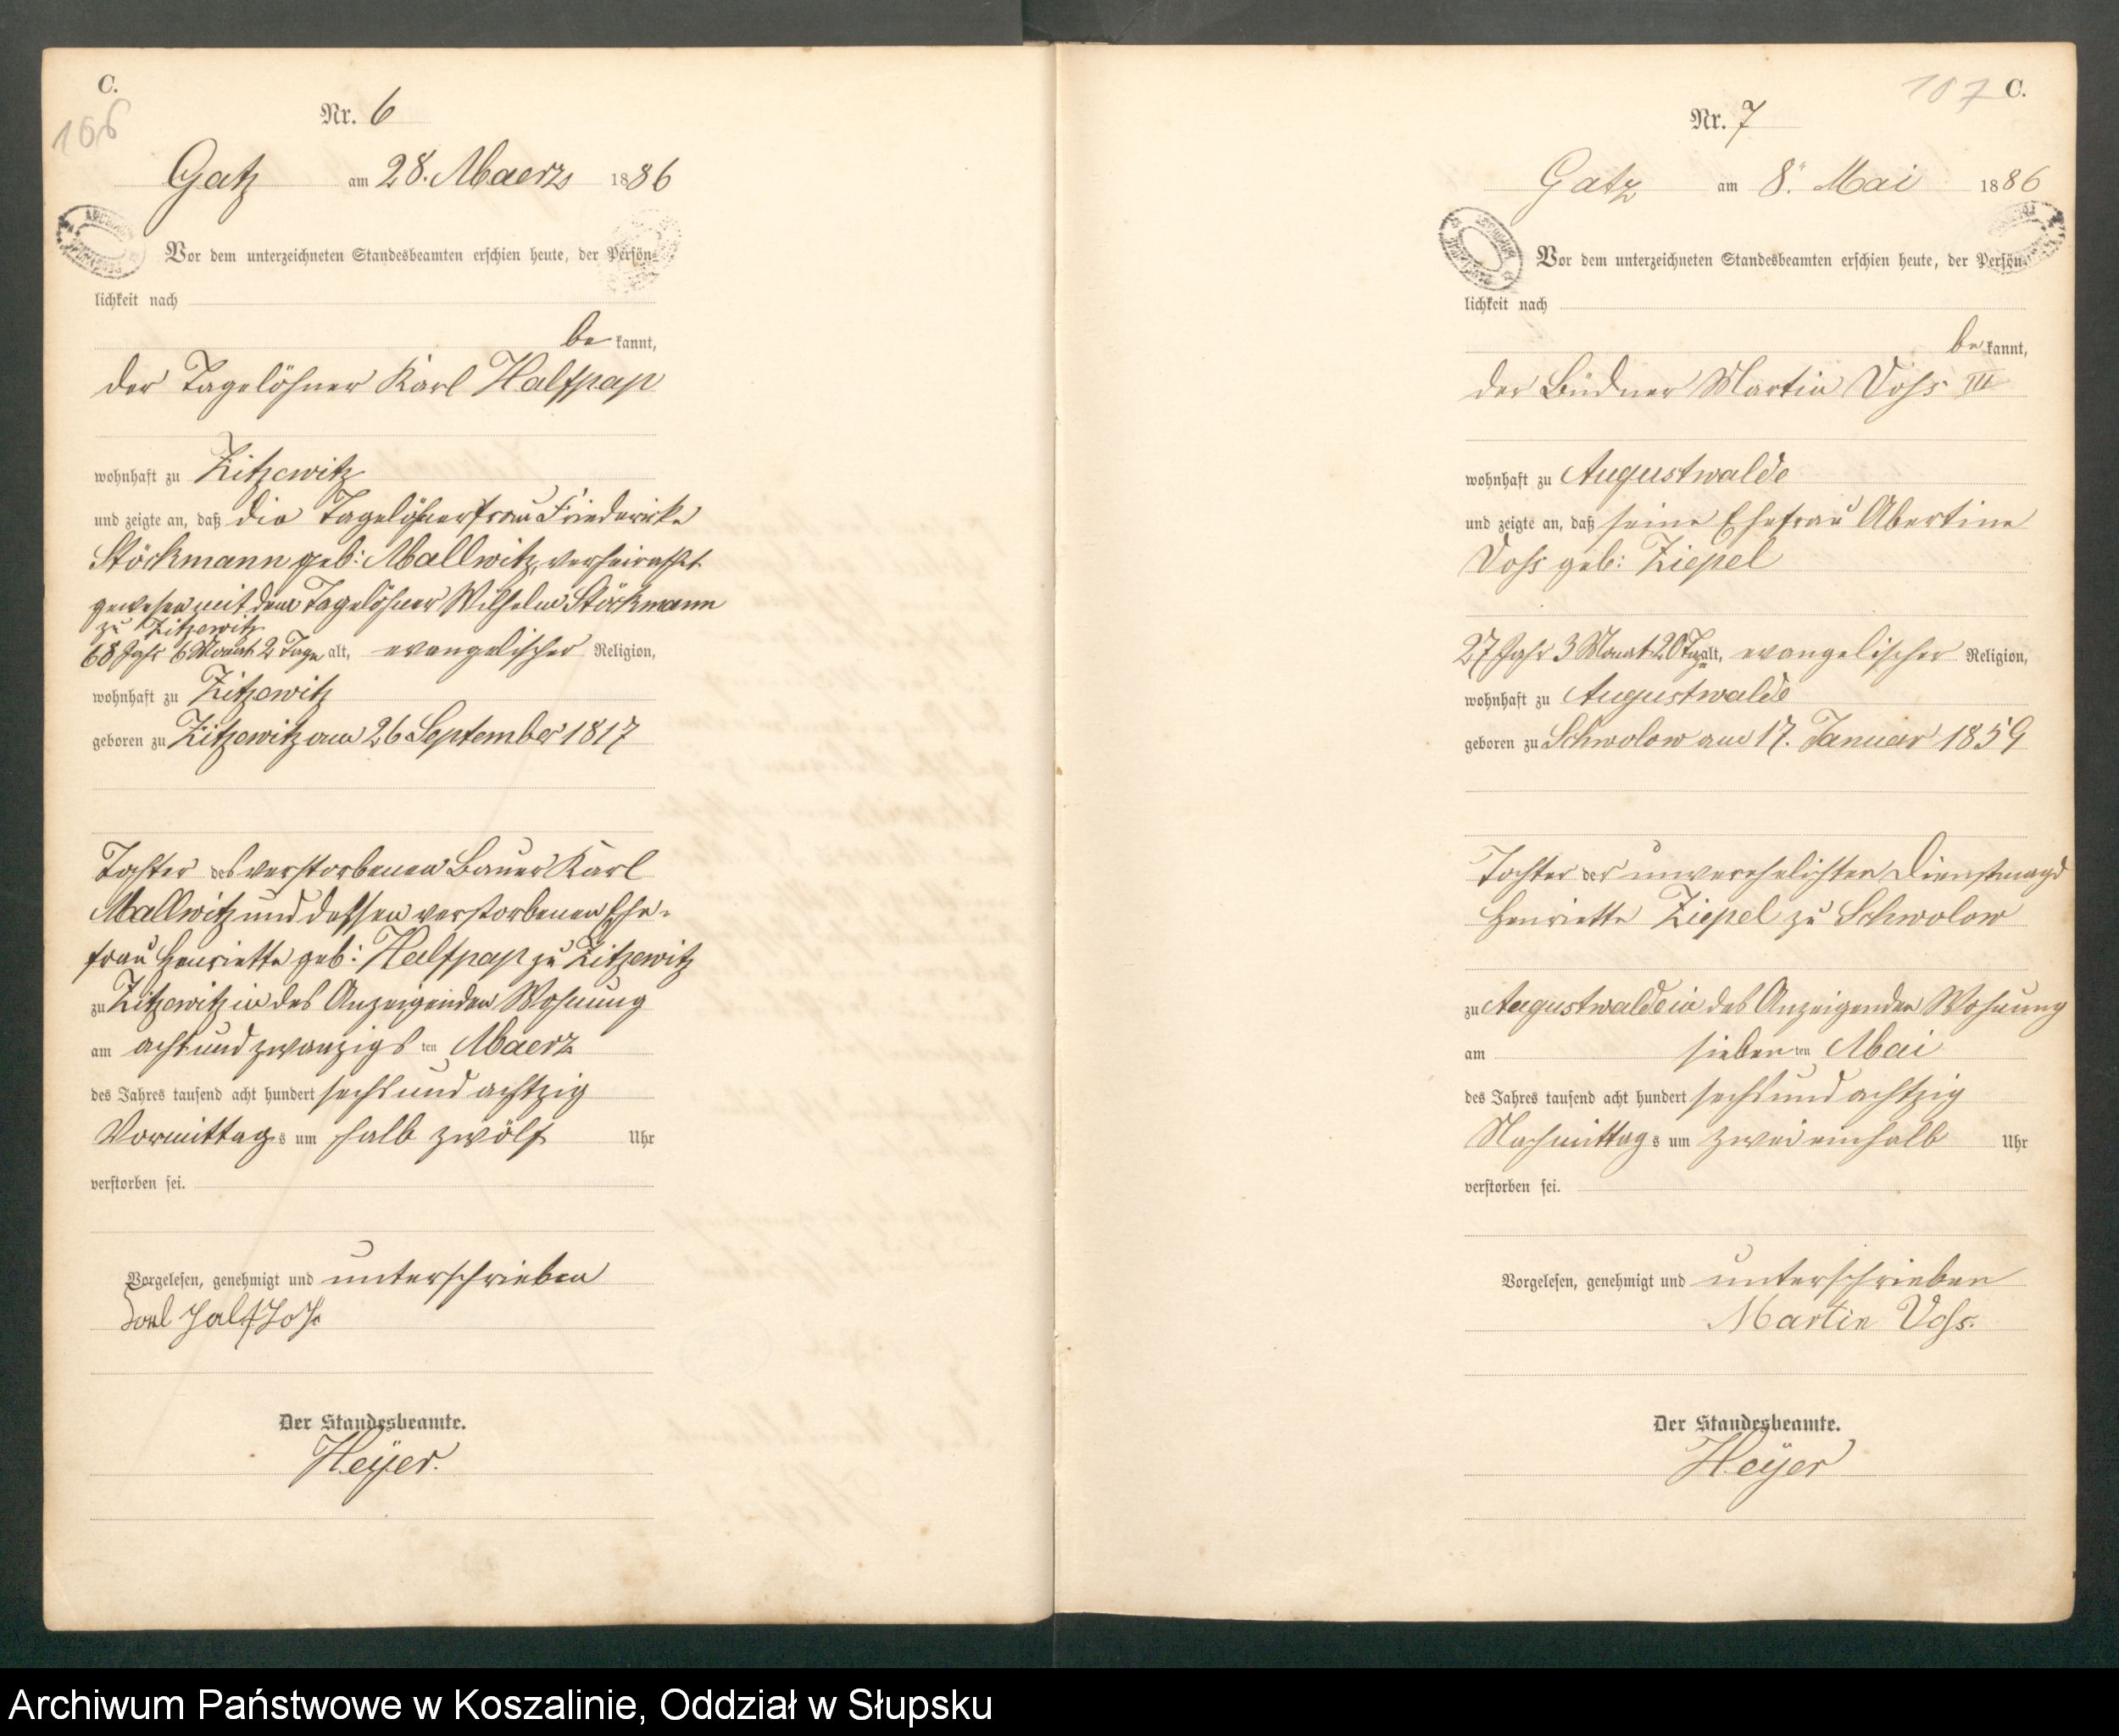 C.
166
Nr. 6
Gatz am 28. Maerz 1886
Vor dem unterzeichneten Standesbeamten erschien heute, der Persön-
lichkeit nach
be kannt,
der Tagelöhner Karl Halfpap
wohnhaft zu Zitzewitz
und zeigte an, daß die Tagelöhnerfrau Friedericke
Stöckmann geb: Mallwitz, verheirathet
gewesen mit dem Tagelöhner Wilhelm Stöckmann
zu Zitzewitz
68 Jahr 6 Monat 2 Tage alt, evangelischer Religion,
wohnhaft zu Zitzewitz
geboren zu Zitzewitz am 26 September 1817
Tochter des verstorbenen Bauer Karl
Mallwitz und dessen verstorbenen Ehe-
frau Henriette geb: Halfpap zu Zitzewitz
zu Zitzewitz in des Anzeigenden Wohnung
am acht und zwanzigs ten Maerz
des Jahres tausend acht hundert sechs und achtzig
Vormittag s um halb zwölf Uhr
verstorben sei.
Vorgelesen, genehmigt und unterschrieben
Der Standesbeamte.
Heyer.
107 C.
Nr. 7
Gatz am 8. Mai 1886
Vor dem unterzeichneten Standesbeamten erschien heute, der Persön-
lichkeit nach
be kannt,
der Büdner Martin Voss III
wohnhaft zu Augustwalde
und zeigte an, daß seine Ehefrau Abertine
Voss geb: Ziepel
27 Jahr 3 Monat 20 Tage alt, evangelischer Religion,
wohnhaft zu Augustwalde
geboren zu Schwolow am 17. Januar 1859
Tochter der unverehelichten Dienstmagd
Henriette Ziepel zu Schwolow
zu Augustwalde in des Anzeigenden Wohnung
am sieben ten Mai
des Jahres tausend acht hundert sechs und achtzig
Nachmittag s um zwei einhalb Uhr
verstorben sei.
Vorgelesen, genehmigt und unterschrieben
Martin Voss.
Der Standesbeamte.
Heyer
Archiwum Państwowe w Koszalinie, Oddział w Słupsku